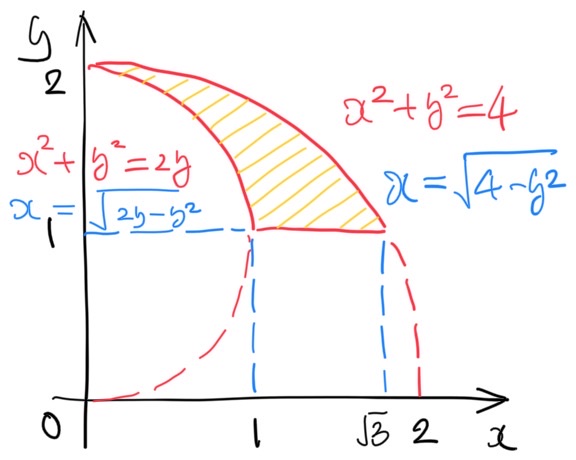 y
2
x² + y² = 4
x² + y² = 2y
x = √(4-y²)
x = √(2y-y²)
1
0
1
√3
2
x